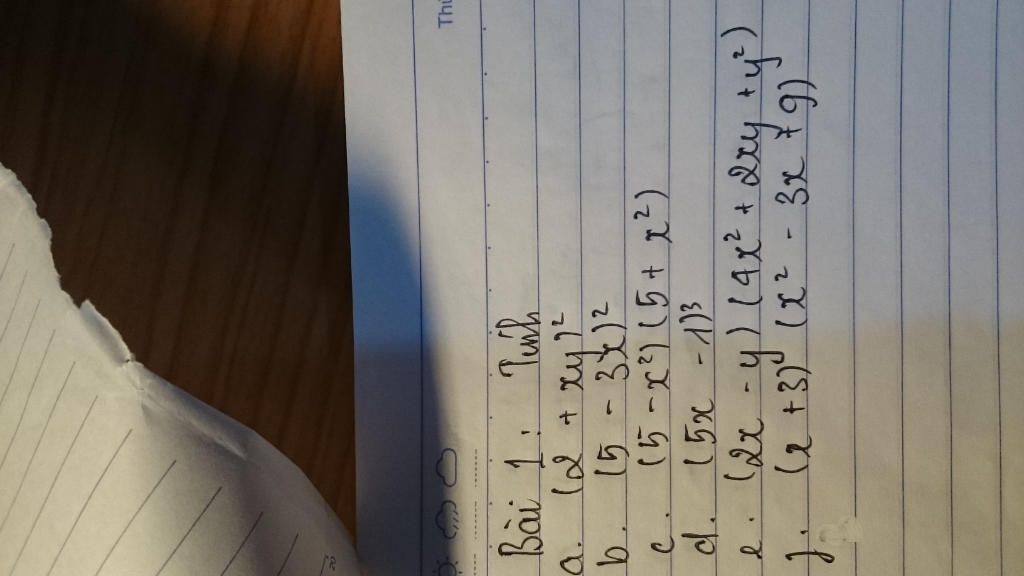 Thứ
Bài 1: Tính
a. (2 + xy)²
b. (5 - 3x)²
c. (5 - x²)(5 + x²)
d. (5x - 1)³
e. (2x - y)(4x² + 2xy + y²)
f. (x + 3)(x² - 3x + 9)